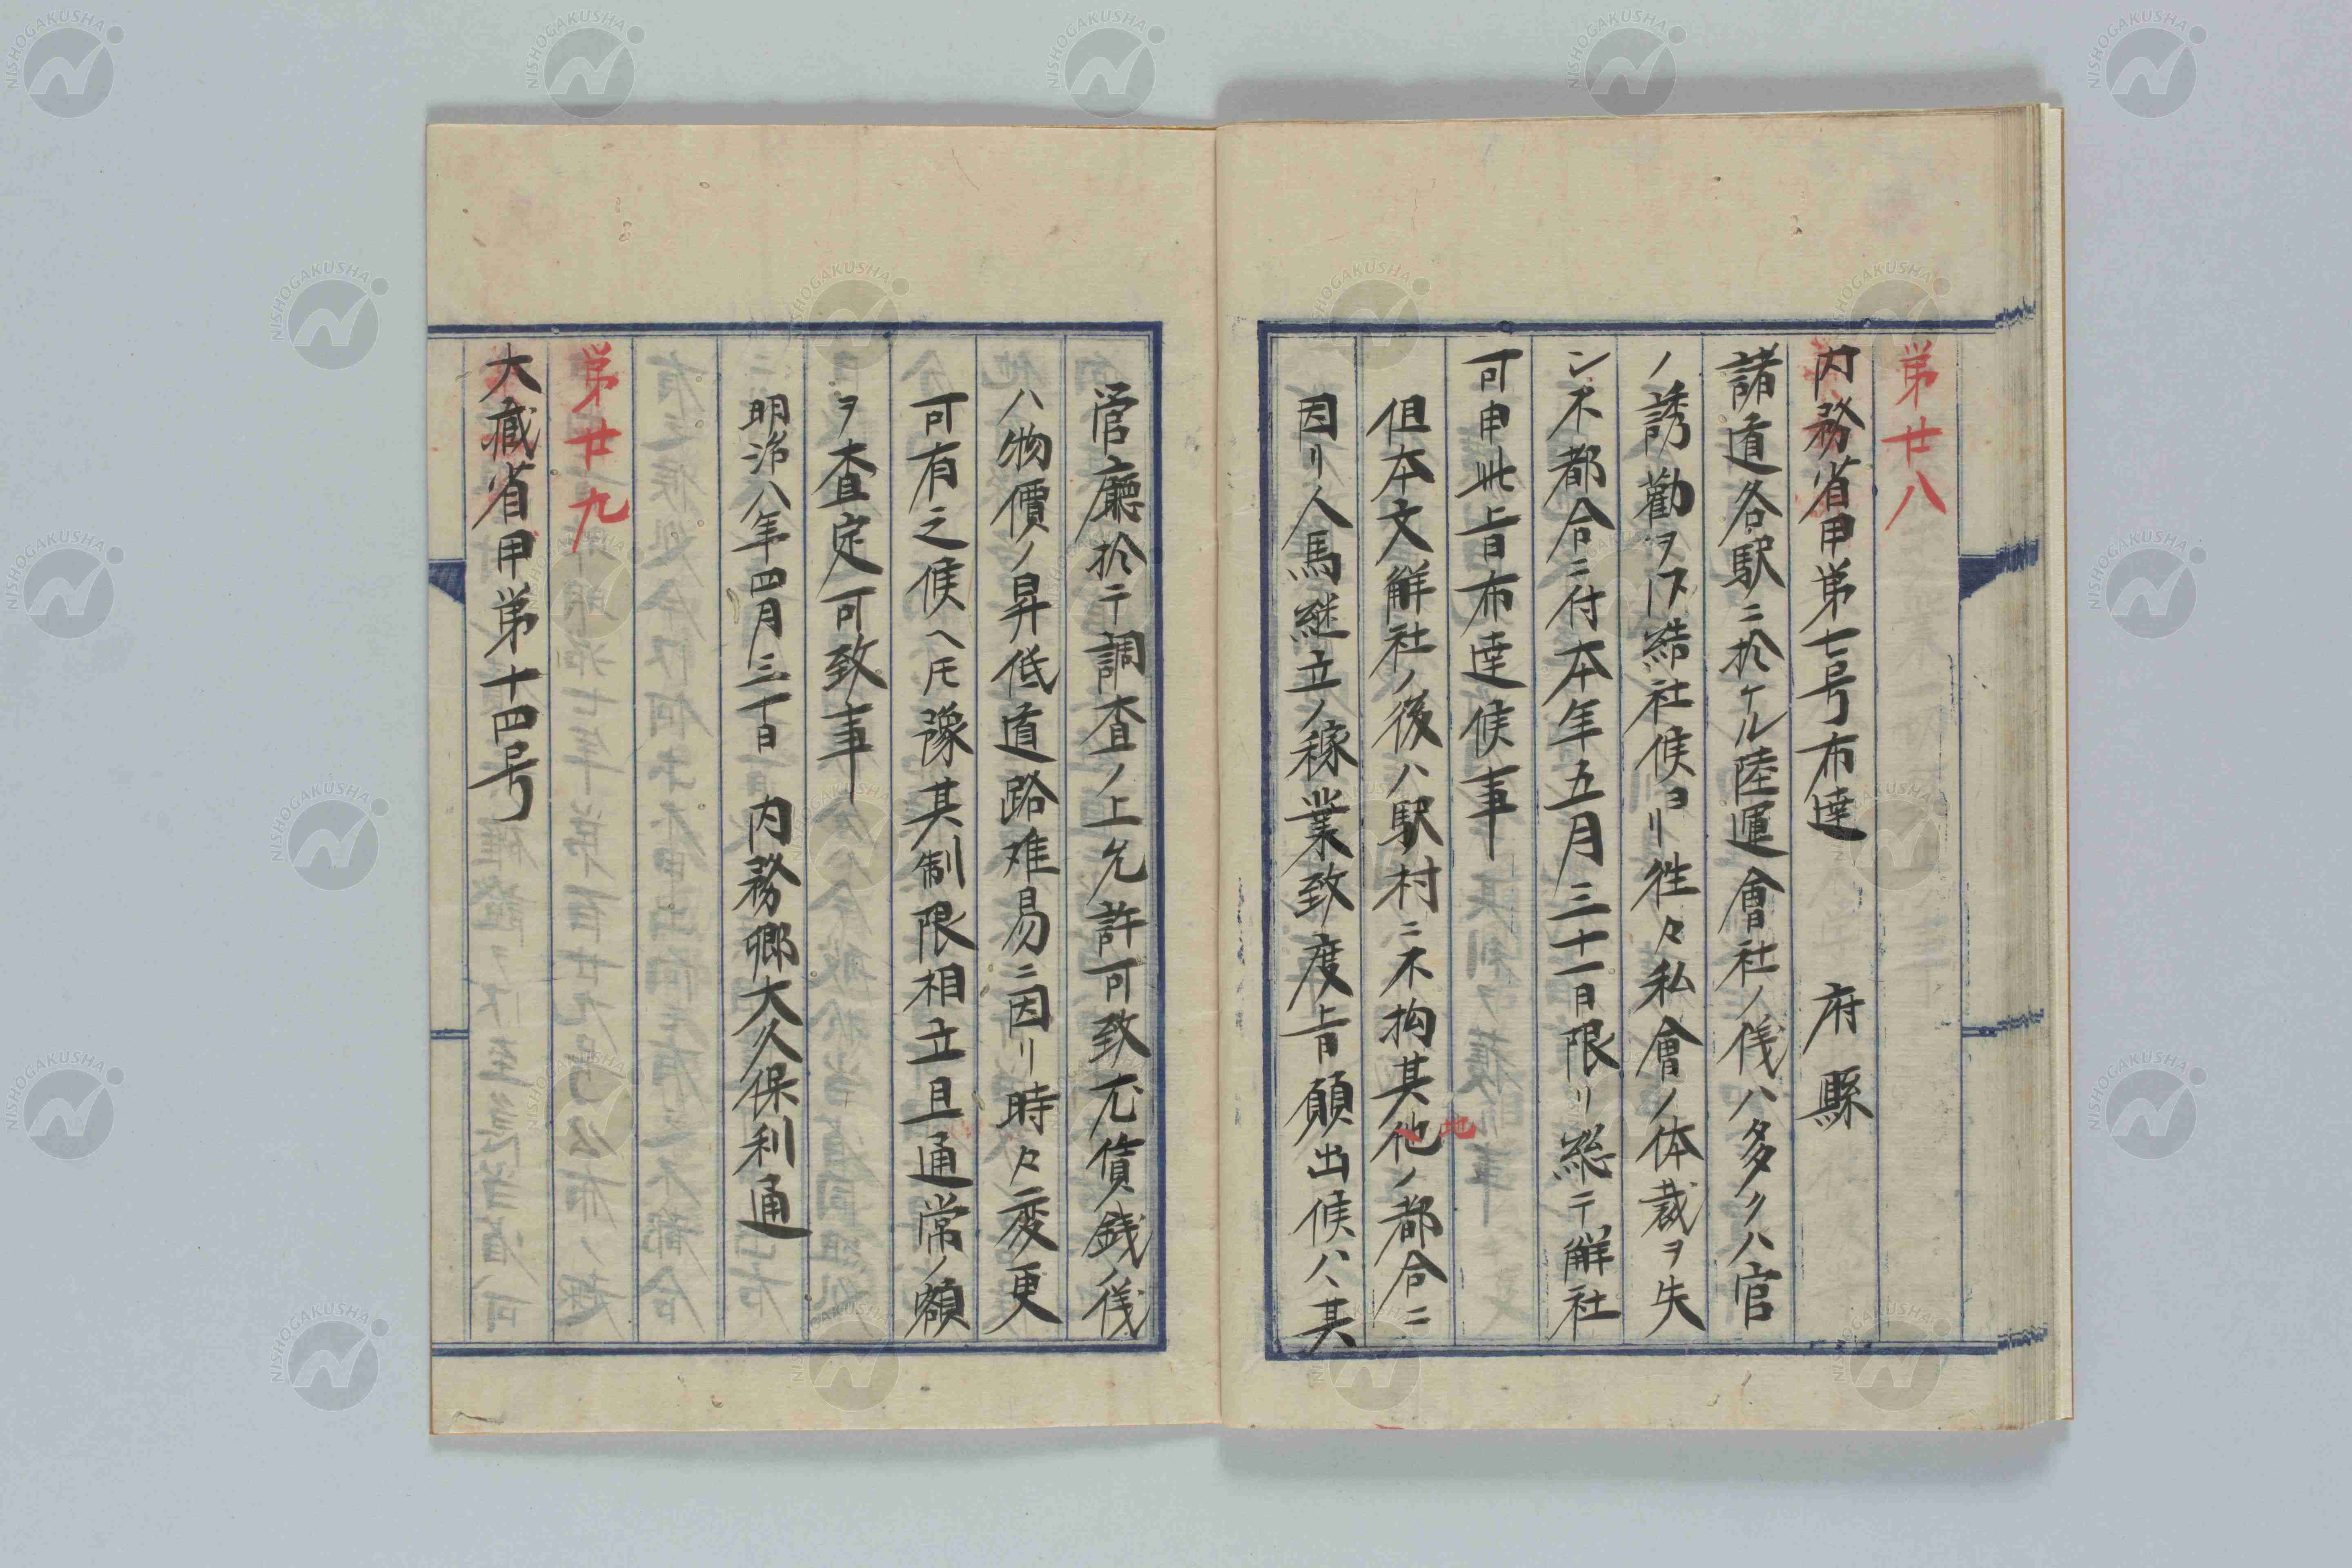 第廿八
内務省甲第七号布達　府縣
諸道各駅ニ於ケル陸運會社ノ儀ハ多クハ官
ノ誘勸ヲ以結社候ヨリ徃々私會ノ体裁ヲ失
シ不都合ニ付本年五月三十一日限リ総テ觧社
可申此旨布達候事
但本文觧社ノ後ハ駅村ニ不拘其他ノ都合ニ
地
因リ人馬継立ノ稼業致度旨願出候ハヽ其
管廳於テ調査ノ上允許可致尤賃銭ノ儀
ハ物價ノ昇低道路难易ニ因リ時々変更
可有之候ヘ𪜈豫其制限相立且通常ノ額
ヲ査定可致事
明治八年四月三十日　内務卿大久保利通
第廿九
大蔵省甲第十四号
NISHOGAKUSHA